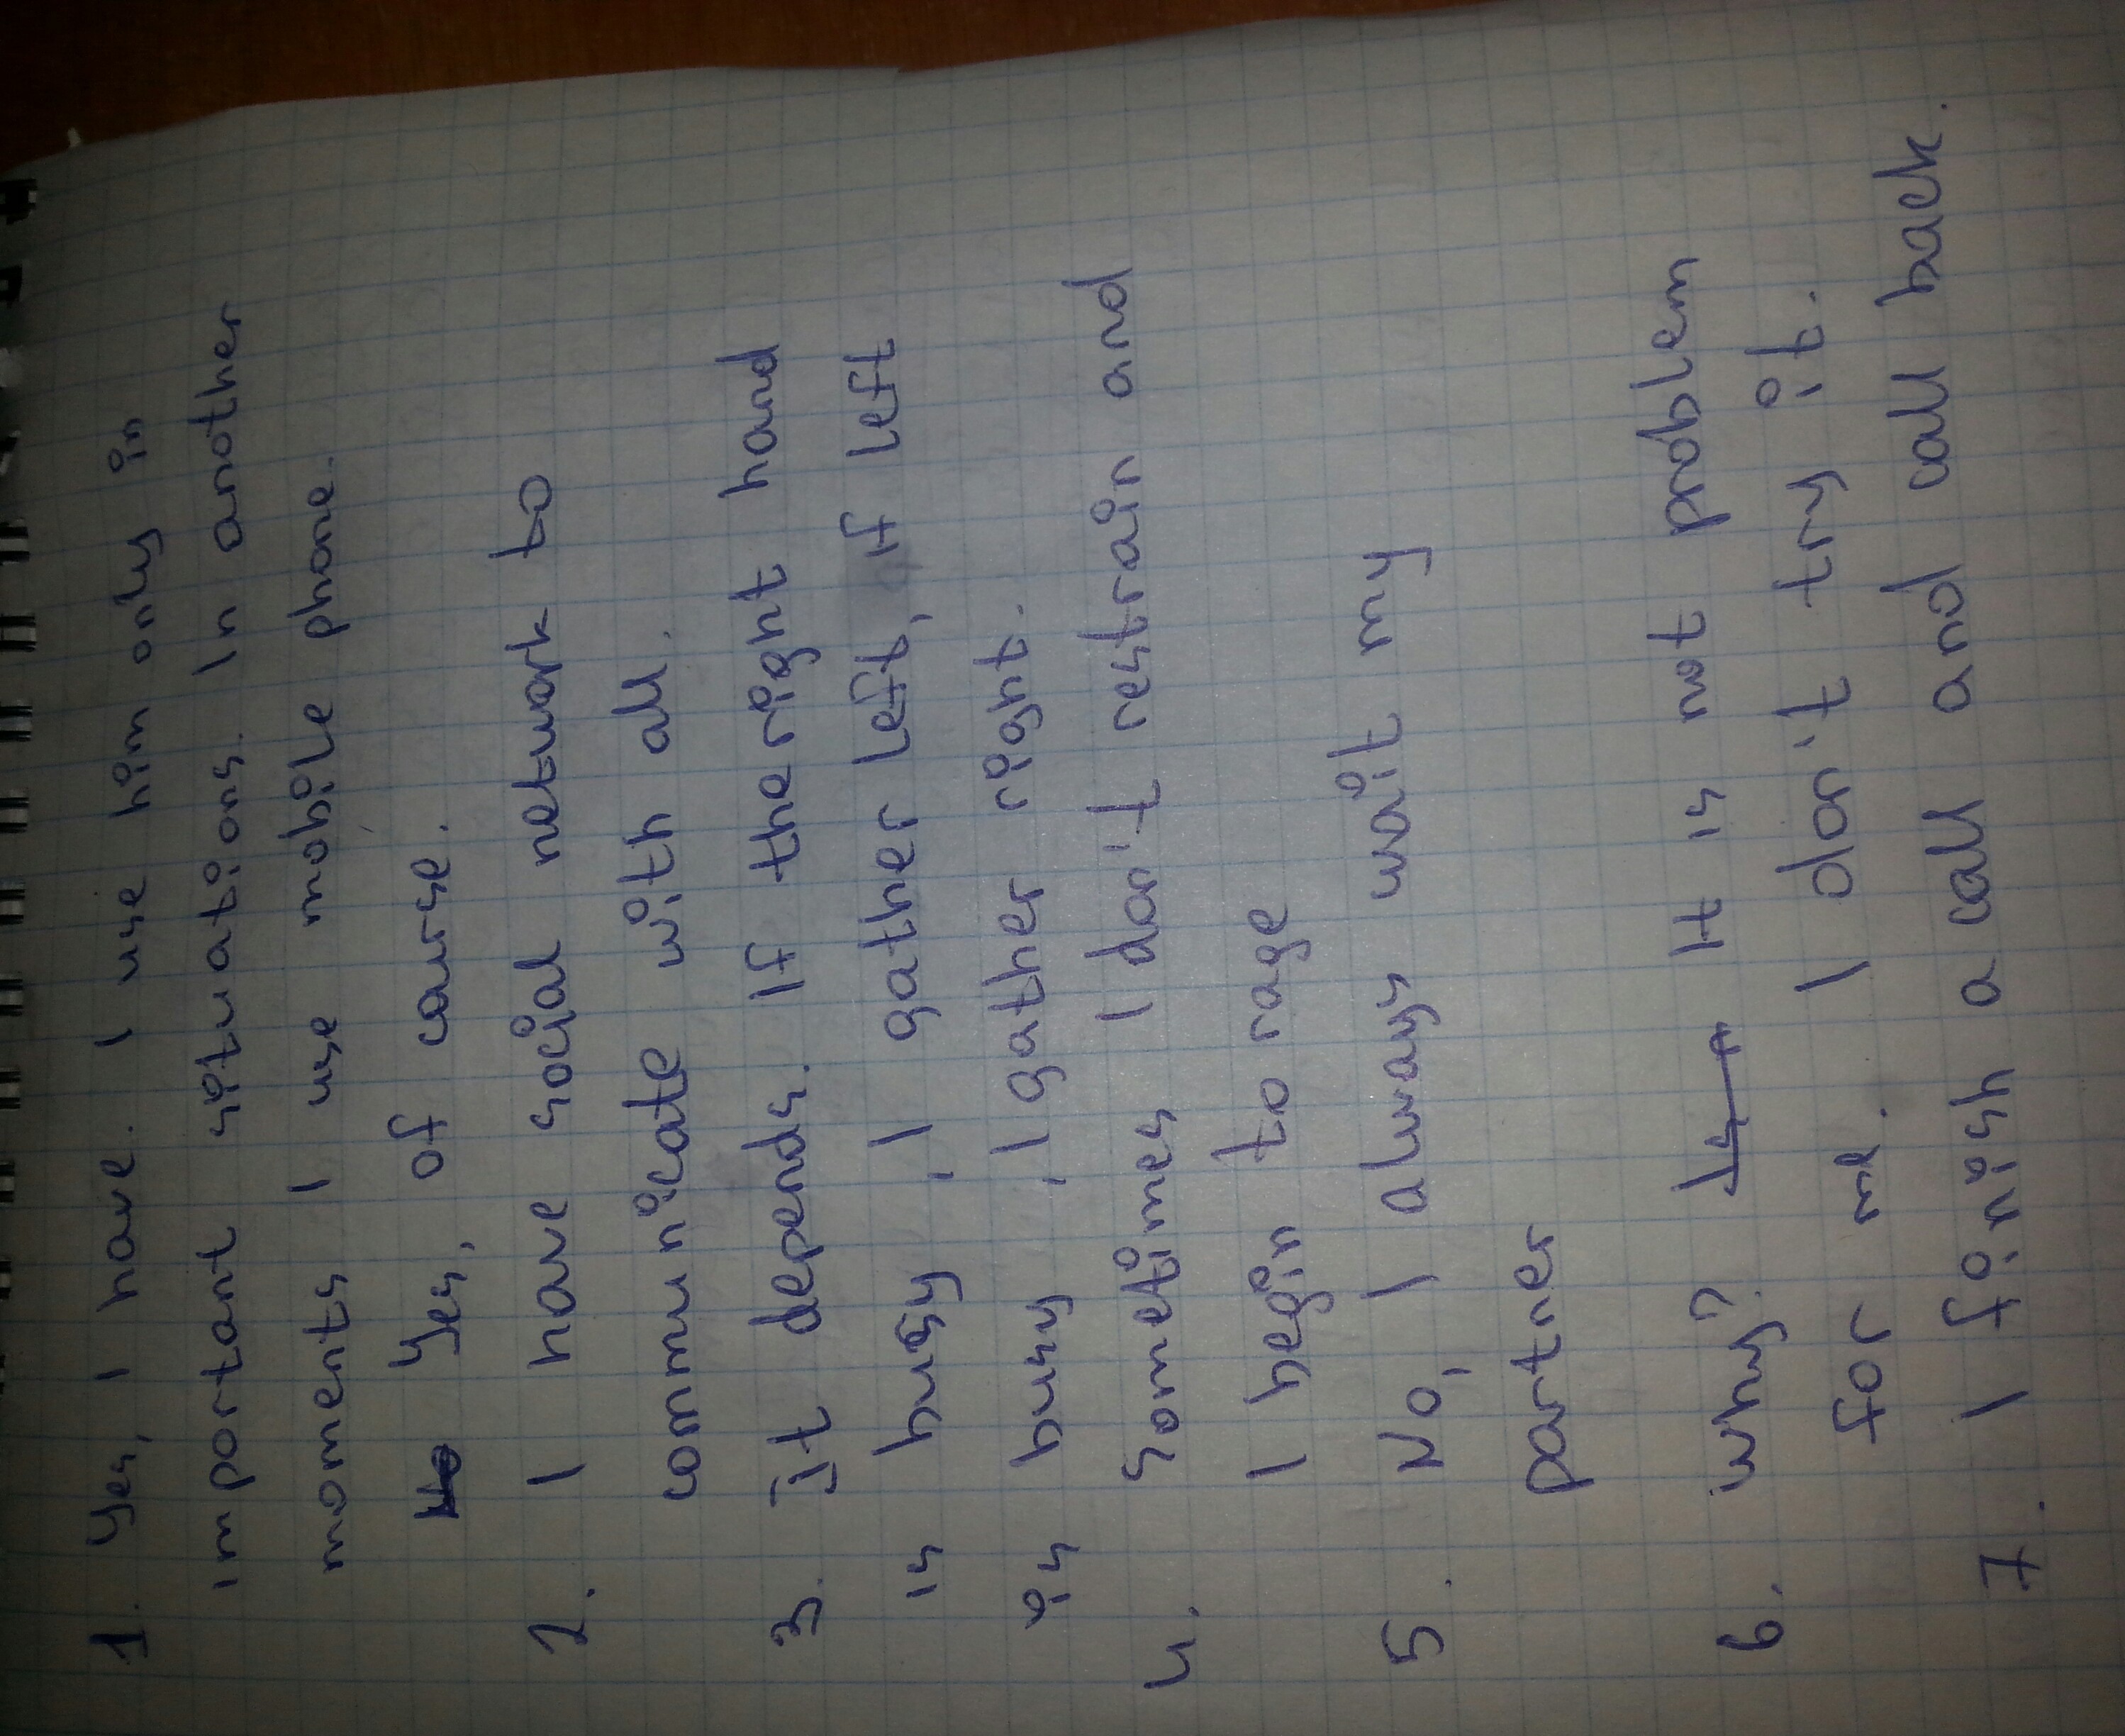 1. Yes, I have. I use him only in
important situations. In another
moments I use mobile phone.
No Yes, of course.
2. I have social network to
communicate with all.
3. It depends. If the right hand
is busy, I gather left, If left
is busy, I gather right.
4. Sometimes I don't restrain and
I begin to rage
5. No, I always wait my
partner
6. why? It is not problem
for me. I don't try it.
7. I finish a call and call back.